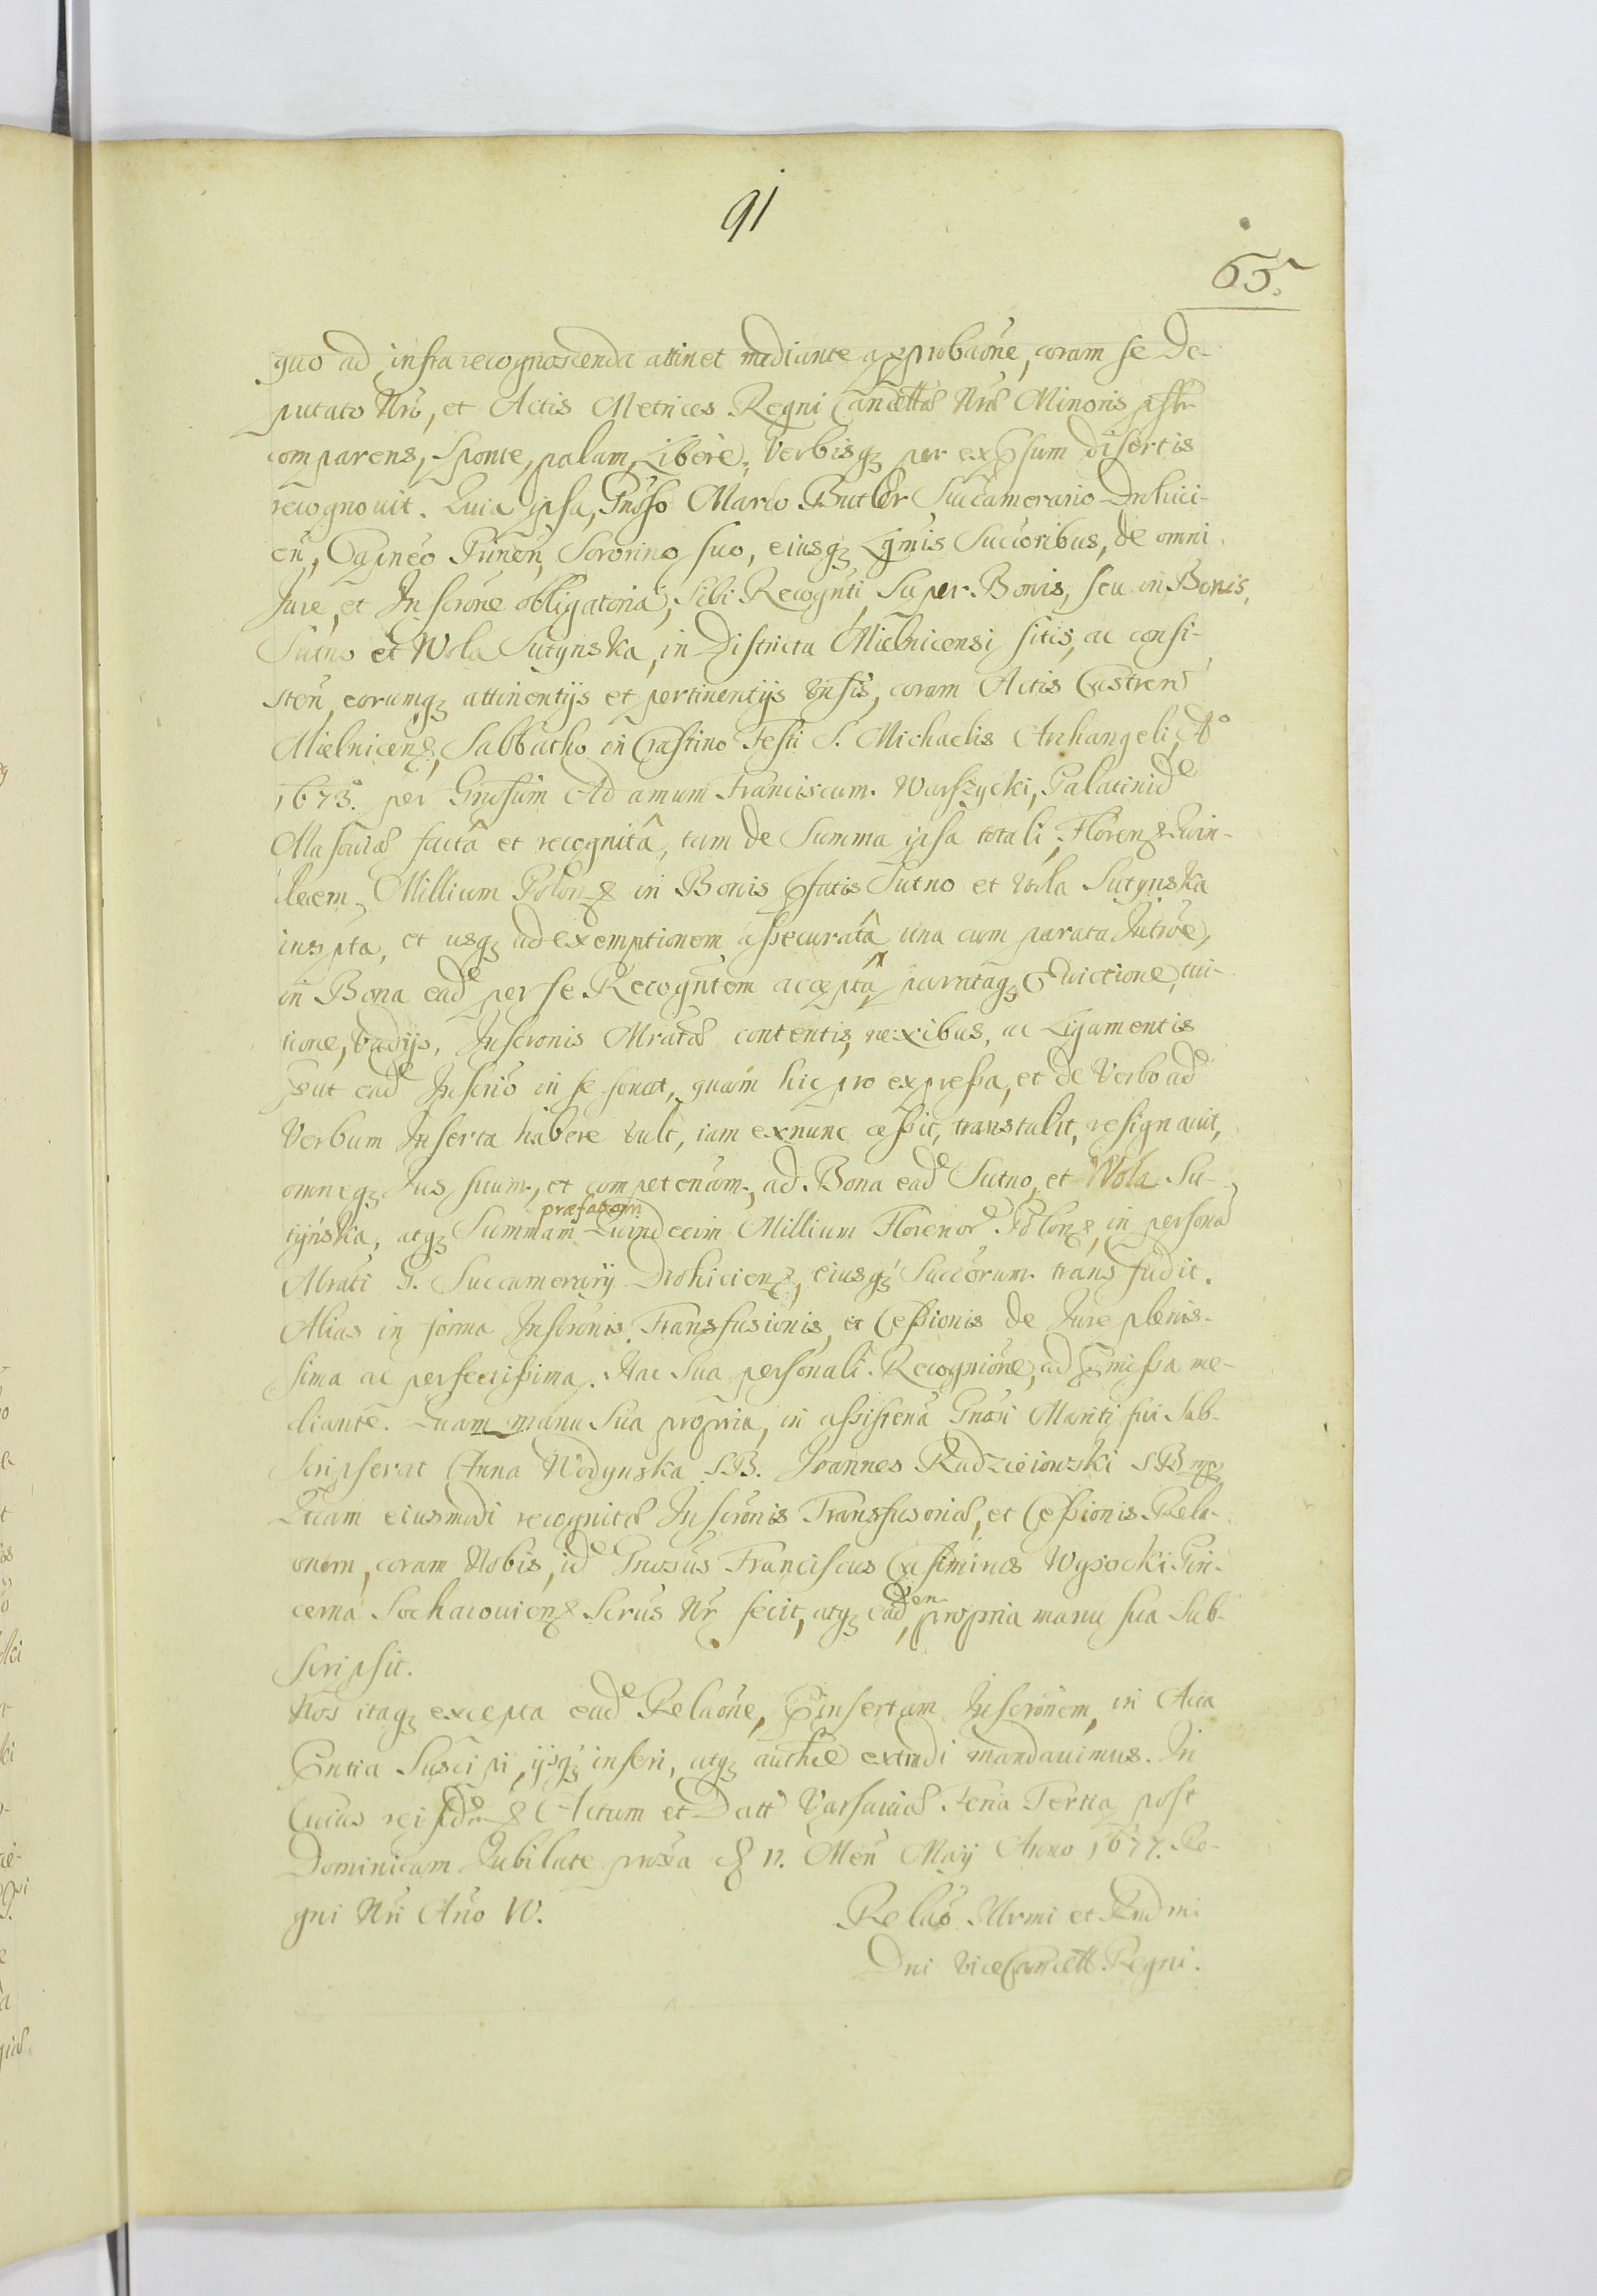 91
65.
quo ad infra recognoscenda attinet mediante approbaōne, coram se De-
putato Nrō, et Actis Metrices Regni Cancellae Nrae Minoris psltr
comparens, sponte, palam, Libere, Verbisq; per expssum disertis
recognouit. Quia ipsa, Gnōso Marco Butler Succamerario Drohici-
cēn, Capnēo Prīnēn, Sororino suo, eiusq; Lgmis Succōribus, de omni
Jure, et Inscrōne obligatoria, sibi Recognti, Super Bonis, seu in Bonis,
Sutno et Wola Sutynska, in Districtu Mielnicensi sitis, ac consi-
stēn, eorumq; attinentijs et pertinentijs Vnsis, coram Actis Castren
Mielnicens, Sabbatho in Crastino Festi S. Michaelis Archangeli, Ao
1673. per Gnōsum Adamum Franciscum Warszycki, Palatinidē
Masouiae factâ et recognitâ, tum de Summa ipsa totali, Floren Quin-
decem Millium Polon in Bonis Pfatis Sutno et Wola Sutynska
inspta, et usq; ad exemptionem assecuratâ una cum parata Intrōe,
in Bona eadē per se Recogntem acceptâ, paratâq; Euictione, tui-
tione, vadijs, Inscrōnis Mratae contentis, nexibus, ac Ligamentis
put eadē Inscriō in se sonat, quam hic pro expressa, et de Verbo ad
Verbum Inserta habere vult, iam exnunc cessit, transtulit, resignauit,
omneq; Jus suum, et competenām, ad Bona eadē Sutno, et Wola Su-
praefatam
tyńska, atq; Summam Quindecim Millium Florenor Polon, in persona
Mrati G. Succamerarij Drohiciens, eiusq; Succōrum transfudit.
Alias in forma Inscrōnis Transfusionis, et Cessionis de Jure plenis-
sima ac perfectissima. Hac Sua personali Recogniōne, ad Pmissa me-
diante. Quam manu Sua propria, in assistenā Gnōsi Mariti sui Sub-
scripserat Anna Wodynska SB. Joannes Radzieiowski SB mp
Quam eiusmodi recognitae Inscrōnis Transfusoriae, et Cessionis Rela-
onem, coram Nobis, idē Gnosus Franciscus Casimirus Wysocki Pin-
cerna Sochacouiens Scrūs Nr fecit, atq; eadem, propria manu sua Sub-
scripsit.
Nos itaq; excepta eadē Relaōne, Pinsertam Inscrōnem, in Acta
Pntia Suscipi, ijsq; inseri, atq; auth̄ce extradi mandauimus. In
Cuius rei fidem Actum et Datt Varsauiae Feria Tertia post
Dominicam Jubilate proxa 11. Mēn Maij Anno 1677. Re-
gni Nri Año IV.
Relaō Illrmi et Rndmi
Dni ViceCancell Regni.